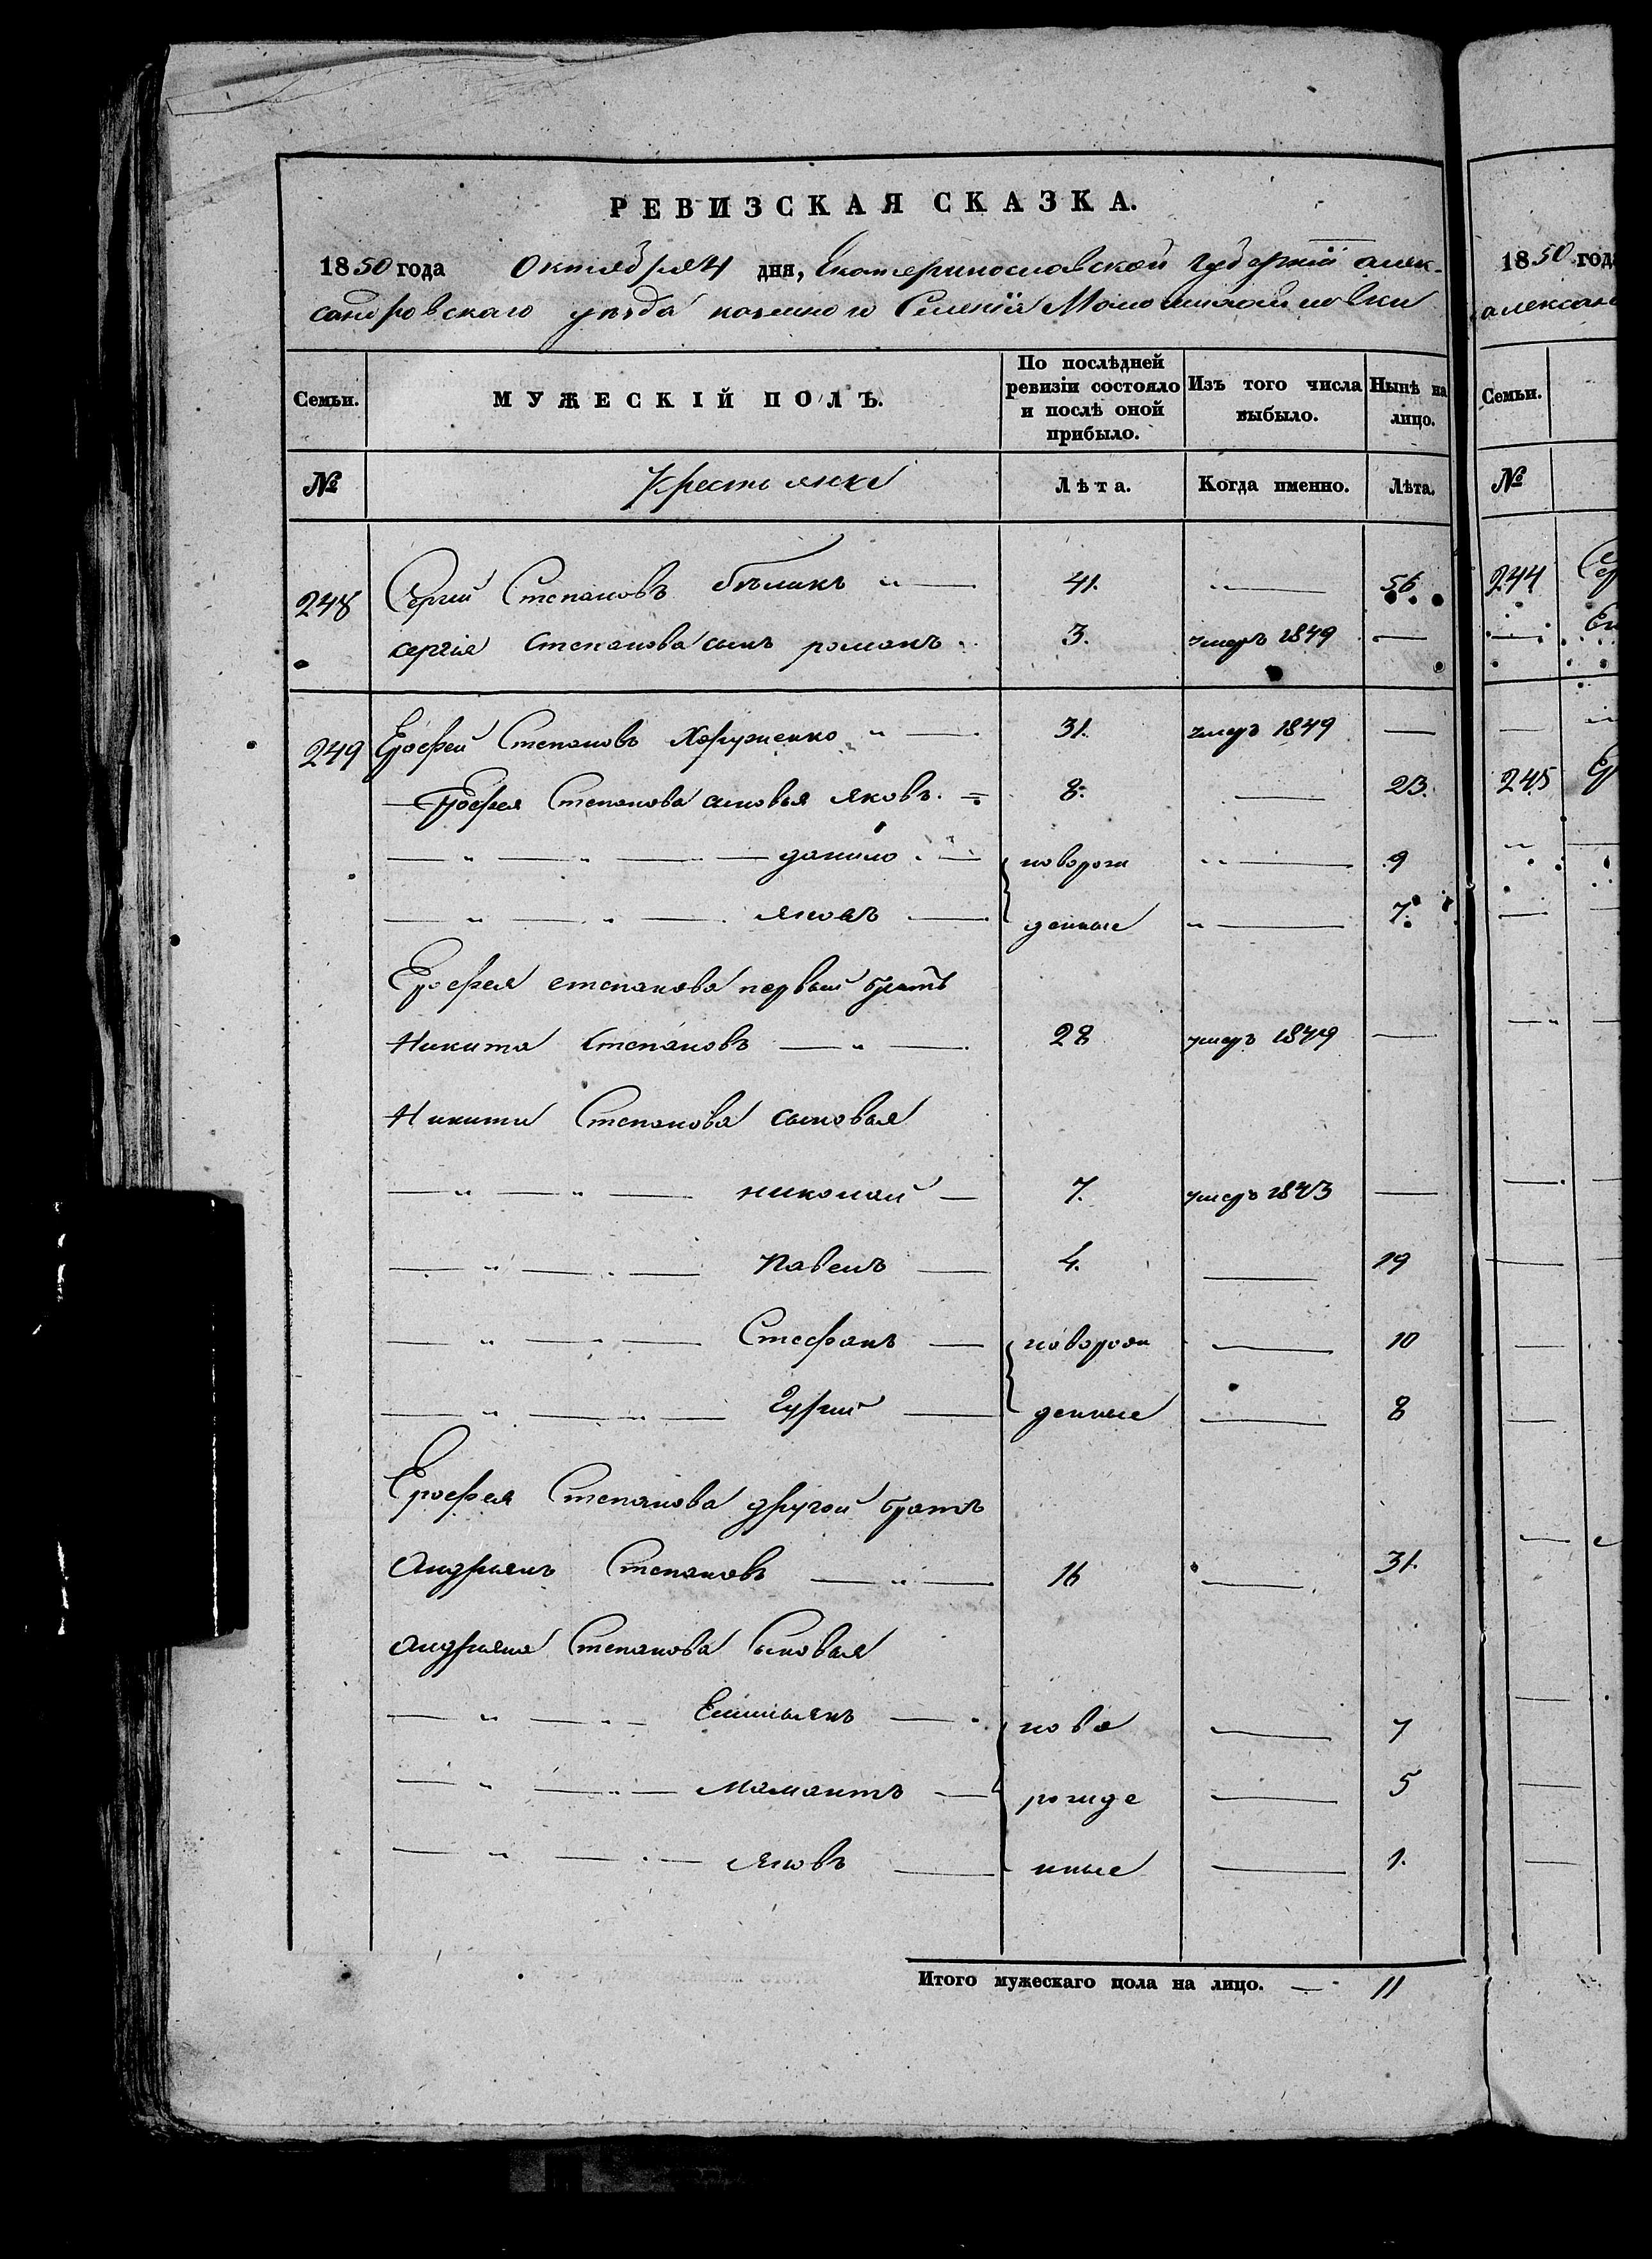 РЕВИЗСКАЯ СКАЗКА.
1850 года Октября 4 дня, Екатеринославской Губернїи алек-
сандровскаго уѣзда казеннаго Селенїя Маломихайловки
Семьи.
МУЖЕСКІЙ ПОЛЪ.
По послѣдней ревизіи состояло и послѣ оной прибыло.
Изъ того числа выбыло.
Нынѣ на лицо.
№
Крестьяне
Лѣта.
Когда именно.
Лѣта.
248 Сергій Степановъ бѣликъ 41. 56
сергія Степанова сынъ романъ 3. умеръ 1849
249 Ерофей Степановъ Харуженко 31. умеръ 1849
Ерофея Степанова сыновья яковъ. 8. 23.
данило новорож 9
яковъ денные 7.
Ерофея степанова первый братъ
Никита Степановъ 28 умеръ 1849
Никиты Степанова сыновья
николай 7. умеръ 1843
Павелъ 4. 19
Стефанъ новорож 10
Гурій денные 8
Ерофея Степанова другой братъ
Андріянъ Степановъ 16 31.
андріяна Степанова сыновья
Емиліянъ ново 7
Мамантъ рожде 5
яковъ нные 1.
Итого мужескаго пола на лицо. 11
1850 года
алексан
Семьи.
№
244 Сер
245 Ер